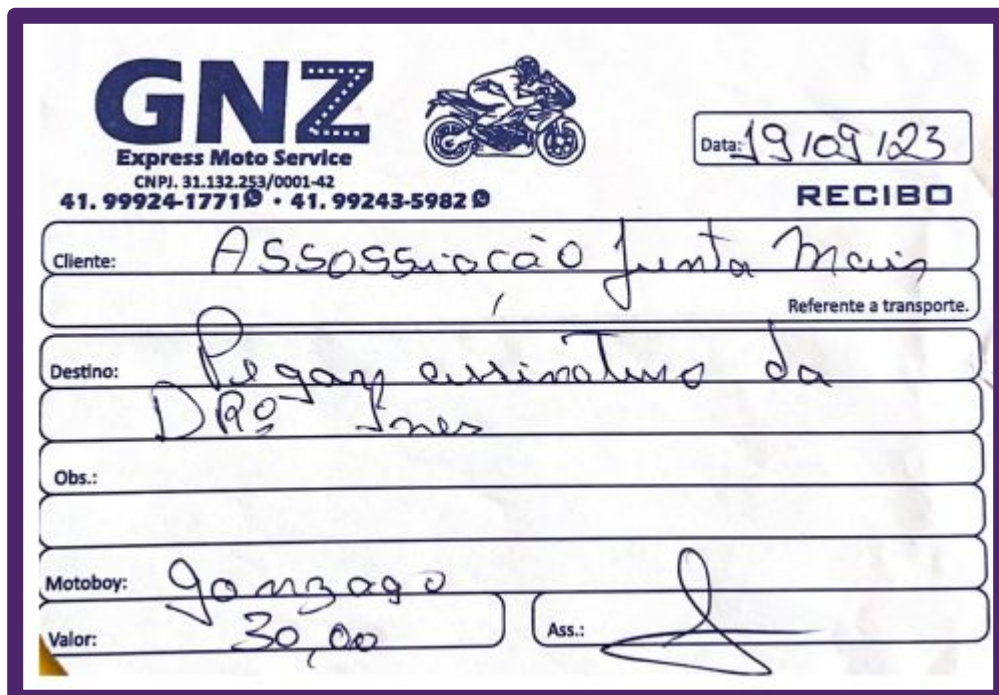 GNZ
Express Moto Service
CNPJ. 31.132.253/0001-42
41. 99924-1771 • 41. 99243-5982
Data: 19/09/23
RECIBO
Cliente: Assossiação Junta Mais
Referente a transporte.
Destino: Pegar assinatura da
DRª Ines
Obs.:
Motoboy: Gonzaga
Valor: 30,00
Ass.: